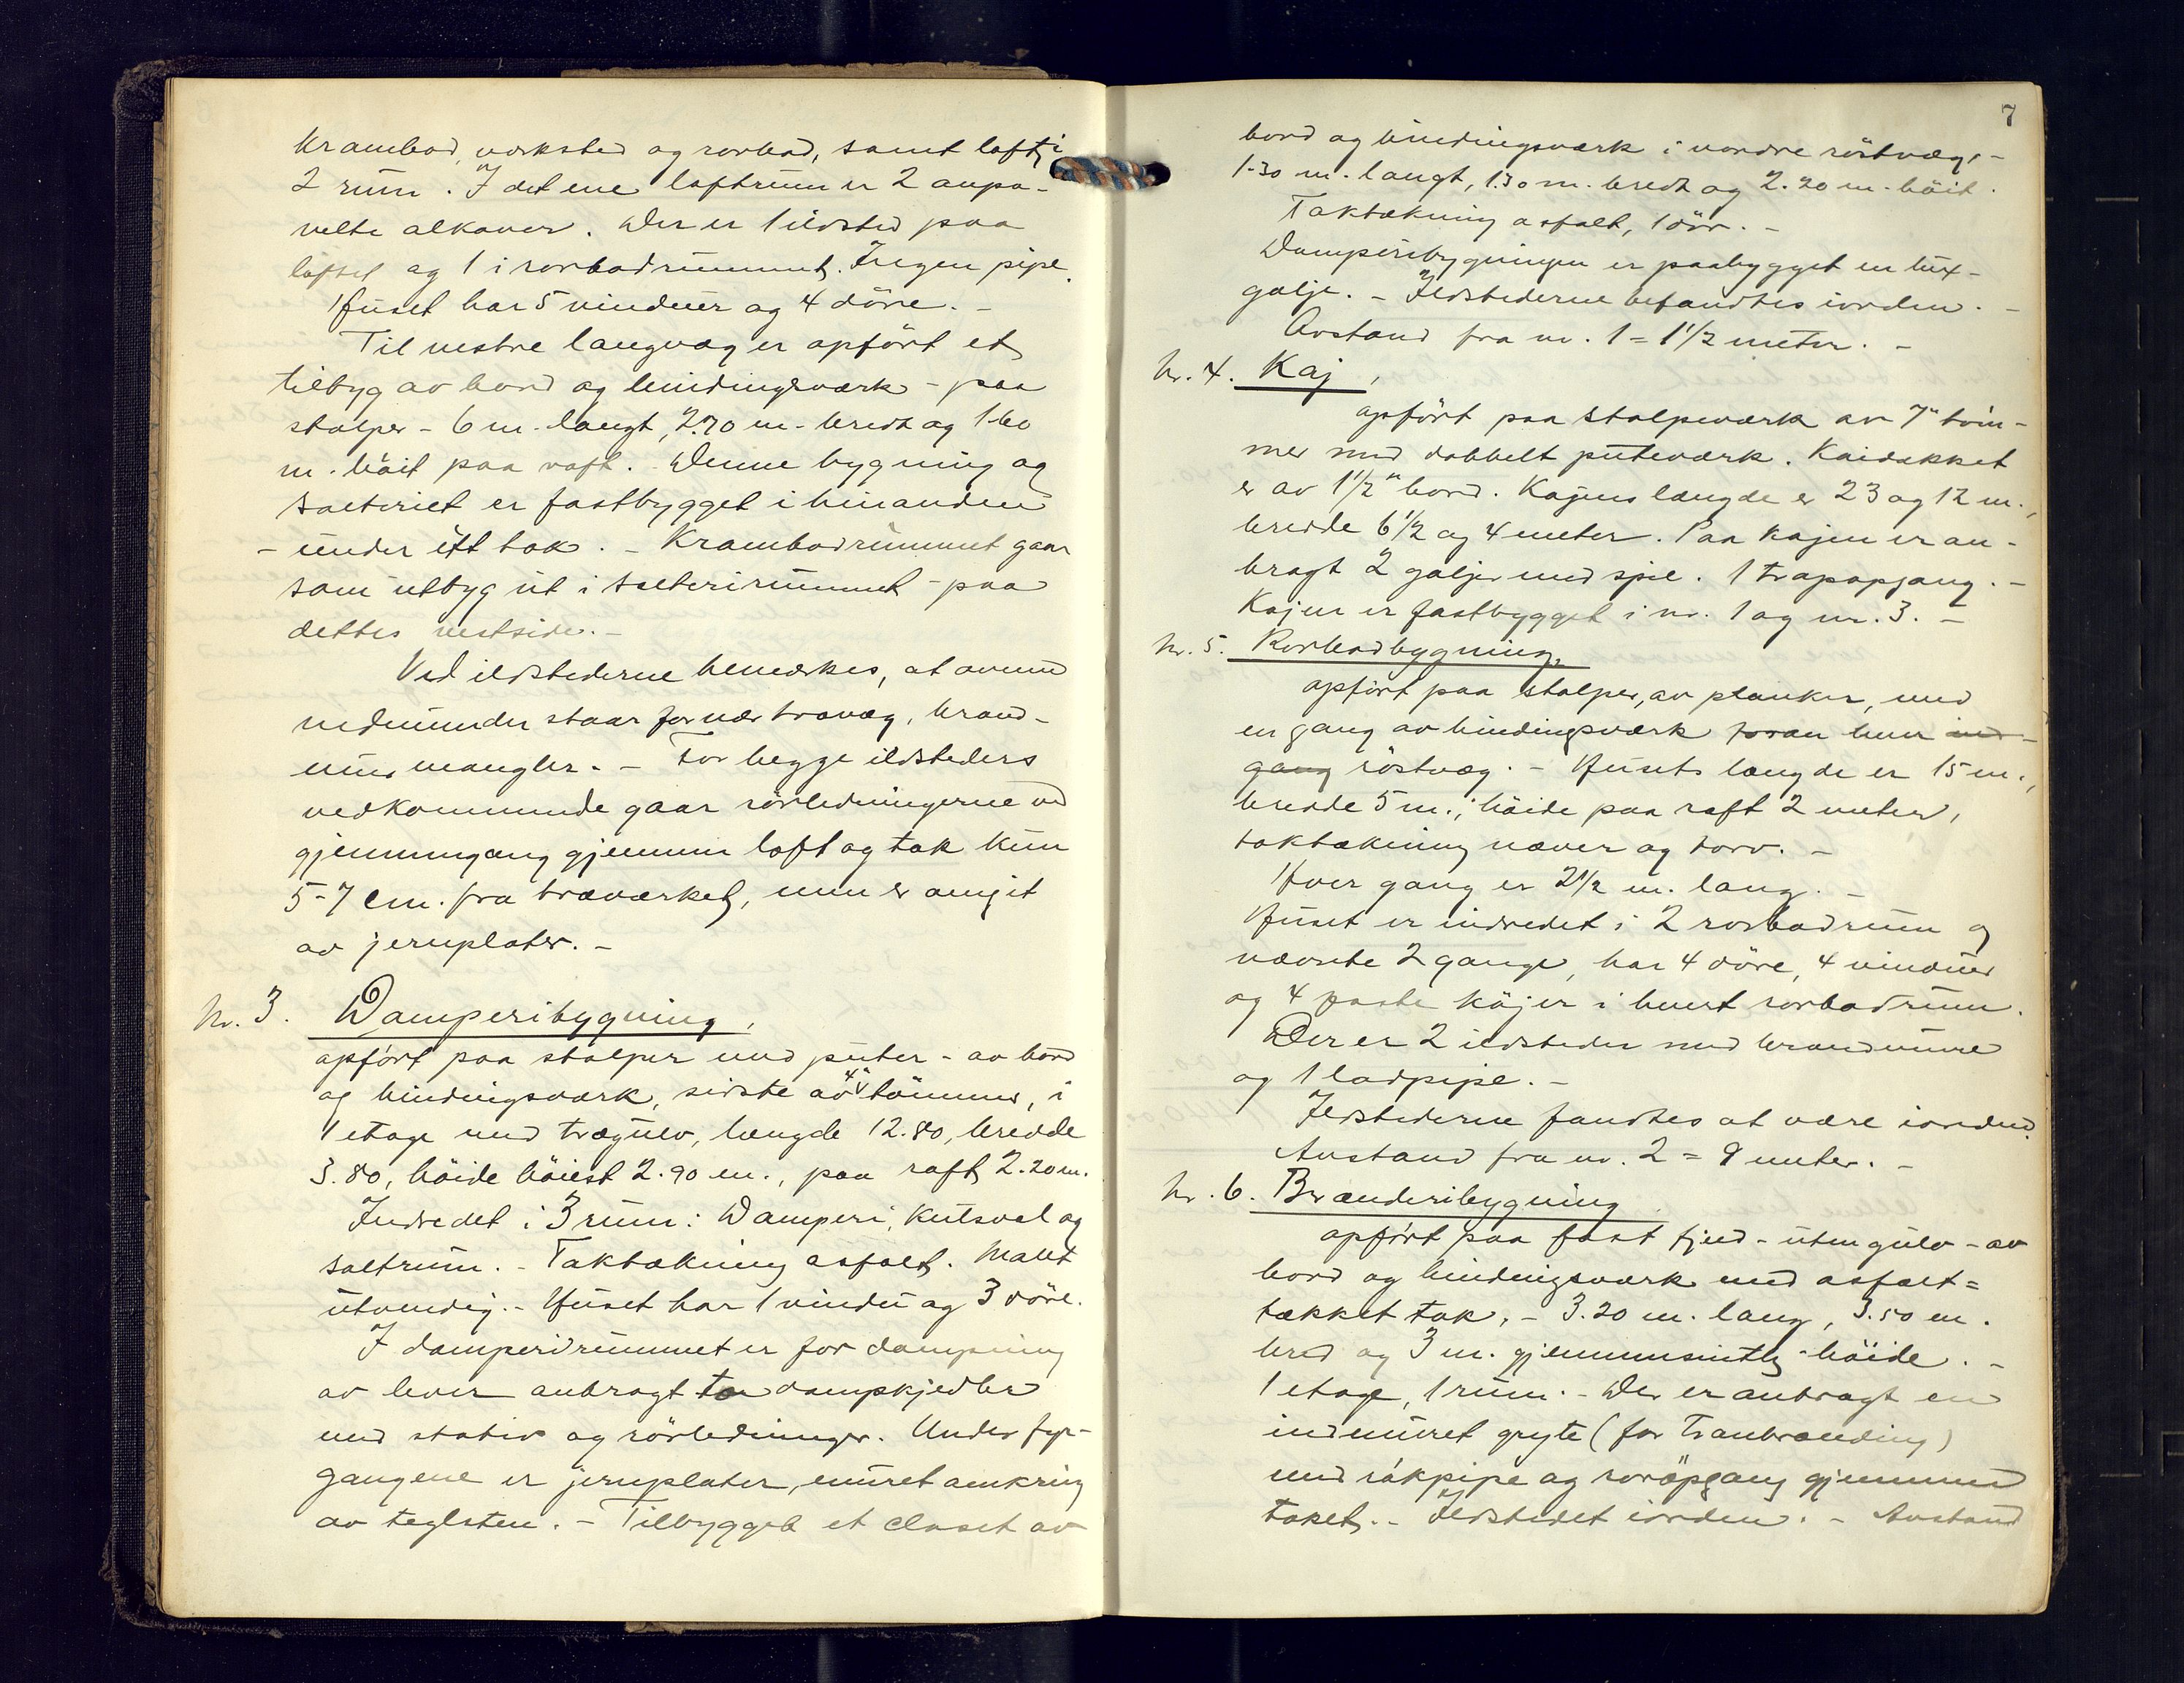 krambod, verksted og rorbod, samt loft i
2 rum. I det ene loftrum er 2 anpa-
nelte alkover. Der er 1 ildsted paa
loftet og 1 i rorbodrummet. Ingen pipe.
Huset har 5 vinduer og 4 döre. -
Til vestre langvæg er opfört et
tilbyg av bord og bindingsværk - paa
stolper - 6 m. langt, 2.70 m. bredt og 1.60
m. höit paa raft. Denne bygning og
salteriet er fastbygget i hinanden
- under ett tak. - Krambodrummet gaar
som utbyg ut i salterirummet - paa
dettes vestside. -
Ved ildstederne bemerkes, at ovnene
nedunder staar for nær trævæg, brand-
mur mangler. - For begge ildsteders
vedkommende gaar rörledningerne ved
gjennemgang gjennem loft og tak kun
5-7 cm. fra træverket, men er omgit
av jernplater. -
Nr. 3. Damperibygning,
opfört paa stolper med puter - av bord
og bindingsværk, sidste av 4" tömmer, i
1 etage med trægulv, længde 12.80, bredde
3.80, höide höiest 2.90 m., paa raft 2.20 m.
Indredet i 3 rum: Damperi, kutsval og
saltrum. - Taktækning asfalt. Malet
utvendig. - Huset har 1 vindu og 3 döre.
I damperirummet er for dampning
av lever anbragt to dampkjedler
med stativ og rörledninger. Under fyr-
gangene er jernplater, muret omkring
av teglsten. - Tilbygget et closet av
7
bord og bindingsværk i nordre röstvæg, -
1.30 m. langt, 1.30 m. bredt og 2.20 m. höit.
Taktækning asfalt, 1 dör. -
Damperibygningen er paabygget en lux-
galje. - Ildstederne befandtes iorden. -
Avstand fra nr. 1 = 1 1/2 meter. -
Nr. 4. Kaj,
opfört paa stolpeværk av 7" töm-
mer med dobbelt puteværk. Kaidækket
er av 1 1/2" bord. Kajens længde er 23 og 12 m.,
bredde 6 1/2 og 4 meter. Paa kajen er an-
bragt 2 galjer med spil. 1 trapopgang. -
Kajen er fastbygget i nr. 1 og nr. 3. -
Nr. 5. Rorbodbygning,
opfört paa stolper, av planker, med
en gang av bindingsværk foran hver ind-
gang röstvæg. - Husets længde er 15 m.,
bredde 5 m., höide paa raft 2 meter,
taktækning næver og torv. -
Hver gang er 2 1/2 m. lang. -
Huset er indredet i 2 rorbodrum og
nævnte 2 gange, har 4 döre, 4 vinduer
og 4 faste köjer i hvert rorbodrum.
Der er 2 ildsteder med brandmure
og 1 ladpipe. -
Ildstederne fandtes at være iorden.
Avstand fra nr. 2 = 9 meter. -
Nr. 6. Brænderibygning
opfört paa fast fjeld - uten gulv - av
bord og bindingsværk med asfalt=
tækket tak, - 3.20 m. lang, 3.50 m.
bred og 3 m. gjennemsnitlig höide. -
1 etage, 1 rum. - Der er anbragt en
indmuret gryte (for tranbrænding)
med rökpipe og roröpgang gjennem
taket. - Ildstedet iorden. - Avstand